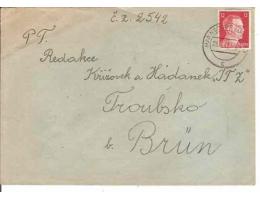 Č.z. 2542
P.T.
Redakce
Křížovek a Hádanek „ITZ"
Troubsko
b. Brün
12